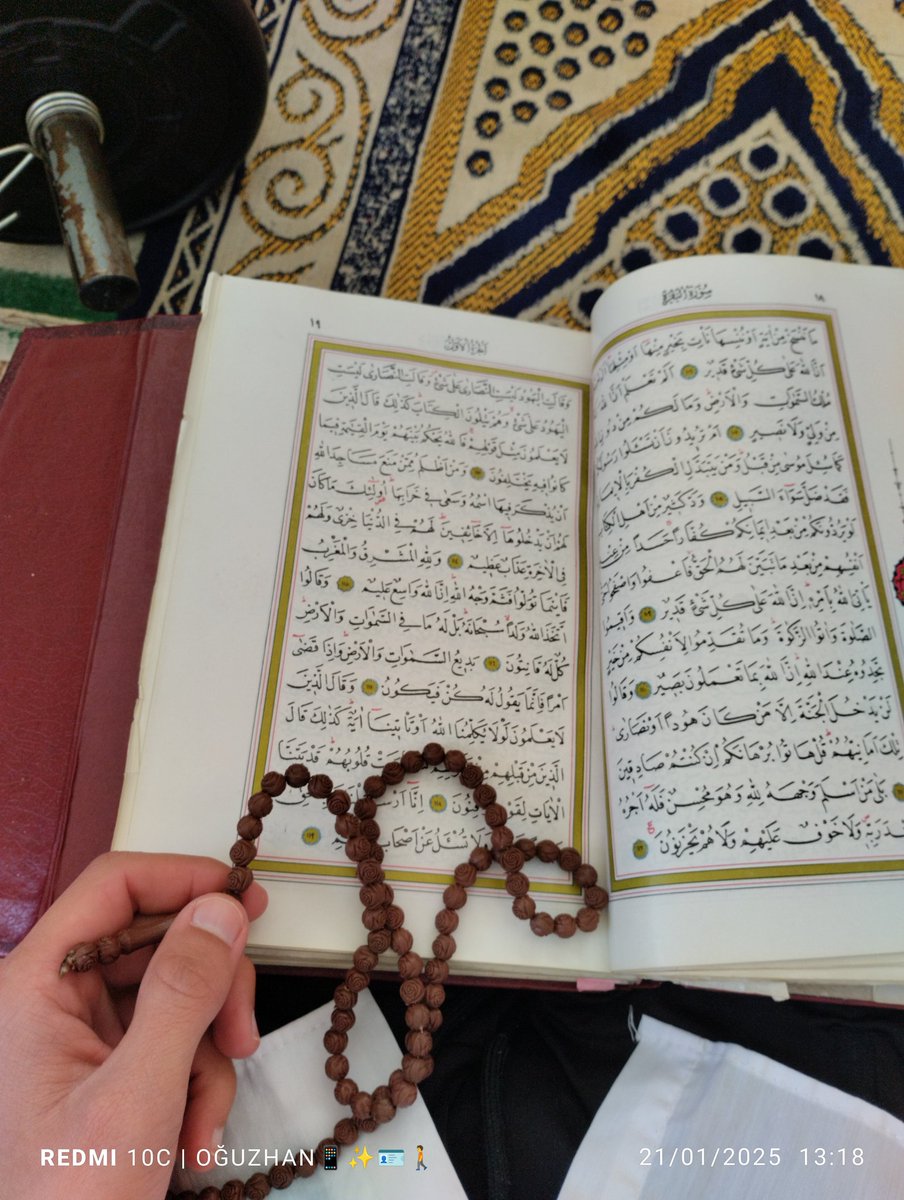 سورة البقرة
١٨
مَا نَنْسَخْ مِنْ اٰيَةٍ اَوْ نُنْسِهَا نَأْتِ بِخَيْرٍ مِنْهَا اَوْ مِثْلِهَا
اَنَّ اللّٰهَ عَلٰى كُلِّ شَيْءٍ قَدِيرٌ ١٠٦ اَلَمْ تَعْلَمْ اَنَّ اللّٰهَ
مُلْكُ السَّمٰوَاتِ وَالْاَرْضِ وَمَا لَكُمْ مِنْ دُونِ
مِنْ وَلِيٍّ وَلَا نَصِيرٍ ١٠٧ اَمْ تُرِيدُونَ اَنْ تَسْـَٔلُوا رَسُولَكُمْ
كَمَا سُئِلَ مُوسٰى مِنْ قَبْلُ وَمَنْ يَتَبَدَّلِ الْكُفْرَ بِالْاِيمَانِ
فَقَدْ ضَلَّ سَوَٓاءَ السَّبِيلِ ١٠٨ وَدَّ كَثِيرٌ مِنْ اَهْلِ الْكِتَابِ
لَوْ يَرُدُّونَكُمْ مِنْ بَعْدِ اِيمَانِكُمْ كُفَّارًا حَسَدًا مِنْ عِنْدِ
اَنْفُسِهِمْ مِنْ بَعْدِ مَا تَبَيَّنَ لَهُمُ الْحَقُّ فَاعْفُوا وَاصْفَحُوا
يَأْتِيَ اللّٰهُ بِاَمْرِهِ اِنَّ اللّٰهَ عَلٰى كُلِّ شَيْءٍ قَدِيرٌ ١٠٩ وَاَقِيمُوا
الصَّلٰوةَ وَاٰتُوا الزَّكٰوةَ وَمَا تُقَدِّمُوا لِاَنْفُسِكُمْ مِنْ خَيْرٍ
تَجِدُوهُ عِنْدَ اللّٰهِ اِنَّ اللّٰهَ بِمَا تَعْمَلُونَ بَصِيرٌ ١١٠ وَقَالُوا
لَنْ يَدْخُلَ الْجَنَّةَ اِلَّا مَنْ كَانَ هُودًا اَوْ نَصَارٰى
تِلْكَ اَمَانِيُّهُمْ قُلْ هَاتُوا بُرْهَانَكُمْ اِنْ كُنْتُمْ صَادِقِينَ
بَلٰى مَنْ اَسْلَمَ وَجْهَهُ لِلّٰهِ وَهُوَ مُحْسِنٌ فَلَهُٓ اَجْرُهُ
عِنْدَ رَبِّهِ وَلَا خَوْفٌ عَلَيْهِمْ وَلَا هُمْ يَحْزَنُونَ ١١٢
الجزء الاول
١٩
وَقَالَتِ الْيَهُودُ لَيْسَتِ النَّصَارٰى عَلٰى شَيْءٍ وَقَالَتِ النَّصَارٰى لَيْسَتِ
الْيَهُودُ عَلٰى شَيْءٍ وَهُمْ يَتْلُونَ الْكِتَابَ كَذٰلِكَ قَالَ الَّذِينَ
لَا يَعْلَمُونَ مِثْلَ قَوْلِهِمْ فَاللّٰهُ يَحْكُمُ بَيْنَهُمْ يَوْمَ الْقِيٰمَةِ فِيمَا
كَانُوا فِيهِ يَخْتَلِفُونَ ١١٣ وَمَنْ اَظْلَمُ مِمَّنْ مَنَعَ مَسَاجِدَ اللّٰهِ
اَنْ يُذْكَرَ فِيهَا اسْمُهُ وَسَعٰى فِي خَرَابِهَا اُولٰٓئِكَ مَا كَانَ
لَهُمْ اَنْ يَدْخُلُوهَٓا اِلَّا خَٓائِفِينَ لَهُمْ فِي الدُّنْيَا خِزْيٌ وَلَهُمْ
فِي الْاٰخِرَةِ عَذَابٌ عَظِيمٌ ١١٤ وَلِلّٰهِ الْمَشْرِقُ وَالْمَغْرِبُ
فَاَيْنَمَا تُوَلُّوا فَثَمَّ وَجْهُ اللّٰهِ اِنَّ اللّٰهَ وَاسِعٌ عَلِيمٌ ١١٥ وَقَالُوا
اتَّخَذَ اللّٰهُ وَلَدًا سُبْحَانَهُ بَلْ لَهُ مَا فِي السَّمٰوَاتِ وَالْاَرْضِ
كُلٌّ لَهُ قَانِتُونَ ١١٦ بَدِيعُ السَّمٰوَاتِ وَالْاَرْضِ وَاِذَا قَضٰٓى
اَمْرًا فَاِنَّمَا يَقُولُ لَهُ كُنْ فَيَكُونُ ١١٧ وَقَالَ الَّذِينَ
لَا يَعْلَمُونَ لَوْلَا يُكَلِّمُنَا اللّٰهُ اَوْ تَأْتِينَٓا اٰيَةٌ كَذٰلِكَ قَالَ
الَّذِينَ مِنْ قَبْلِهِمْ قُلُوبُهُمْ قَدْ بَيَّنَّا
الْاٰيَاتِ لِقَوْمٍ ١١٨ اِنَّٓا
وَلَا تُسْـَٔلُ عَنْ اَصْحَابِ ١١٩
REDMI 10C | OĞUZHAN📱✨🪪🚶
21/01/2025 13:18